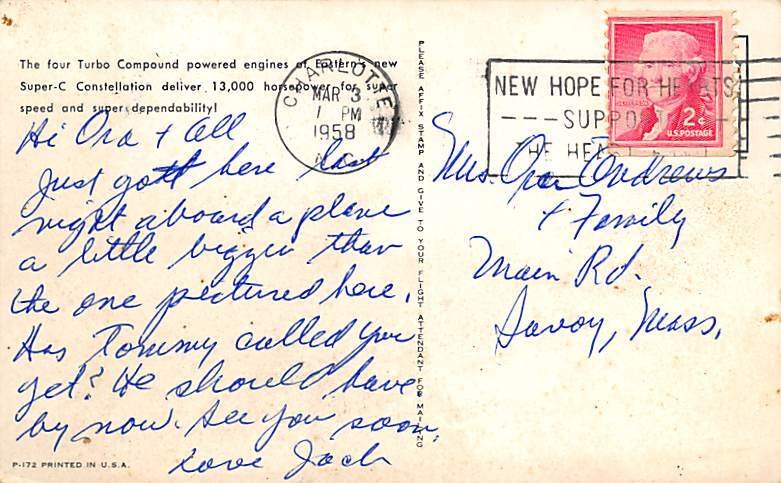 The four Turbo Compound powered engines of Eastern's new
Super-C Constellation deliver 13,000 horsepower for super
speed and super dependability!
Hi Ora + all
Just got here last
night aboard a plane
a little bigger than
the one pictured here.
Has Tommy called you
yet? He should have
by now. See you soon,
Love Jack
P-172 PRINTED IN U.S.A.
PLEASE AFFIX STAMP AND GIVE TO YOUR FLIGHT ATTENDANT FOR MAILING
CHARLOTTE
MAR 3
1 PM
1958
N.C.
NEW HOPE FOR HEARTS
SUPPO
THE HEART
JEFFERSON
2¢
U.S. POSTAGE
Mrs. Ora Andrews
+ Family
Main Rd.
Savoy, Mass.